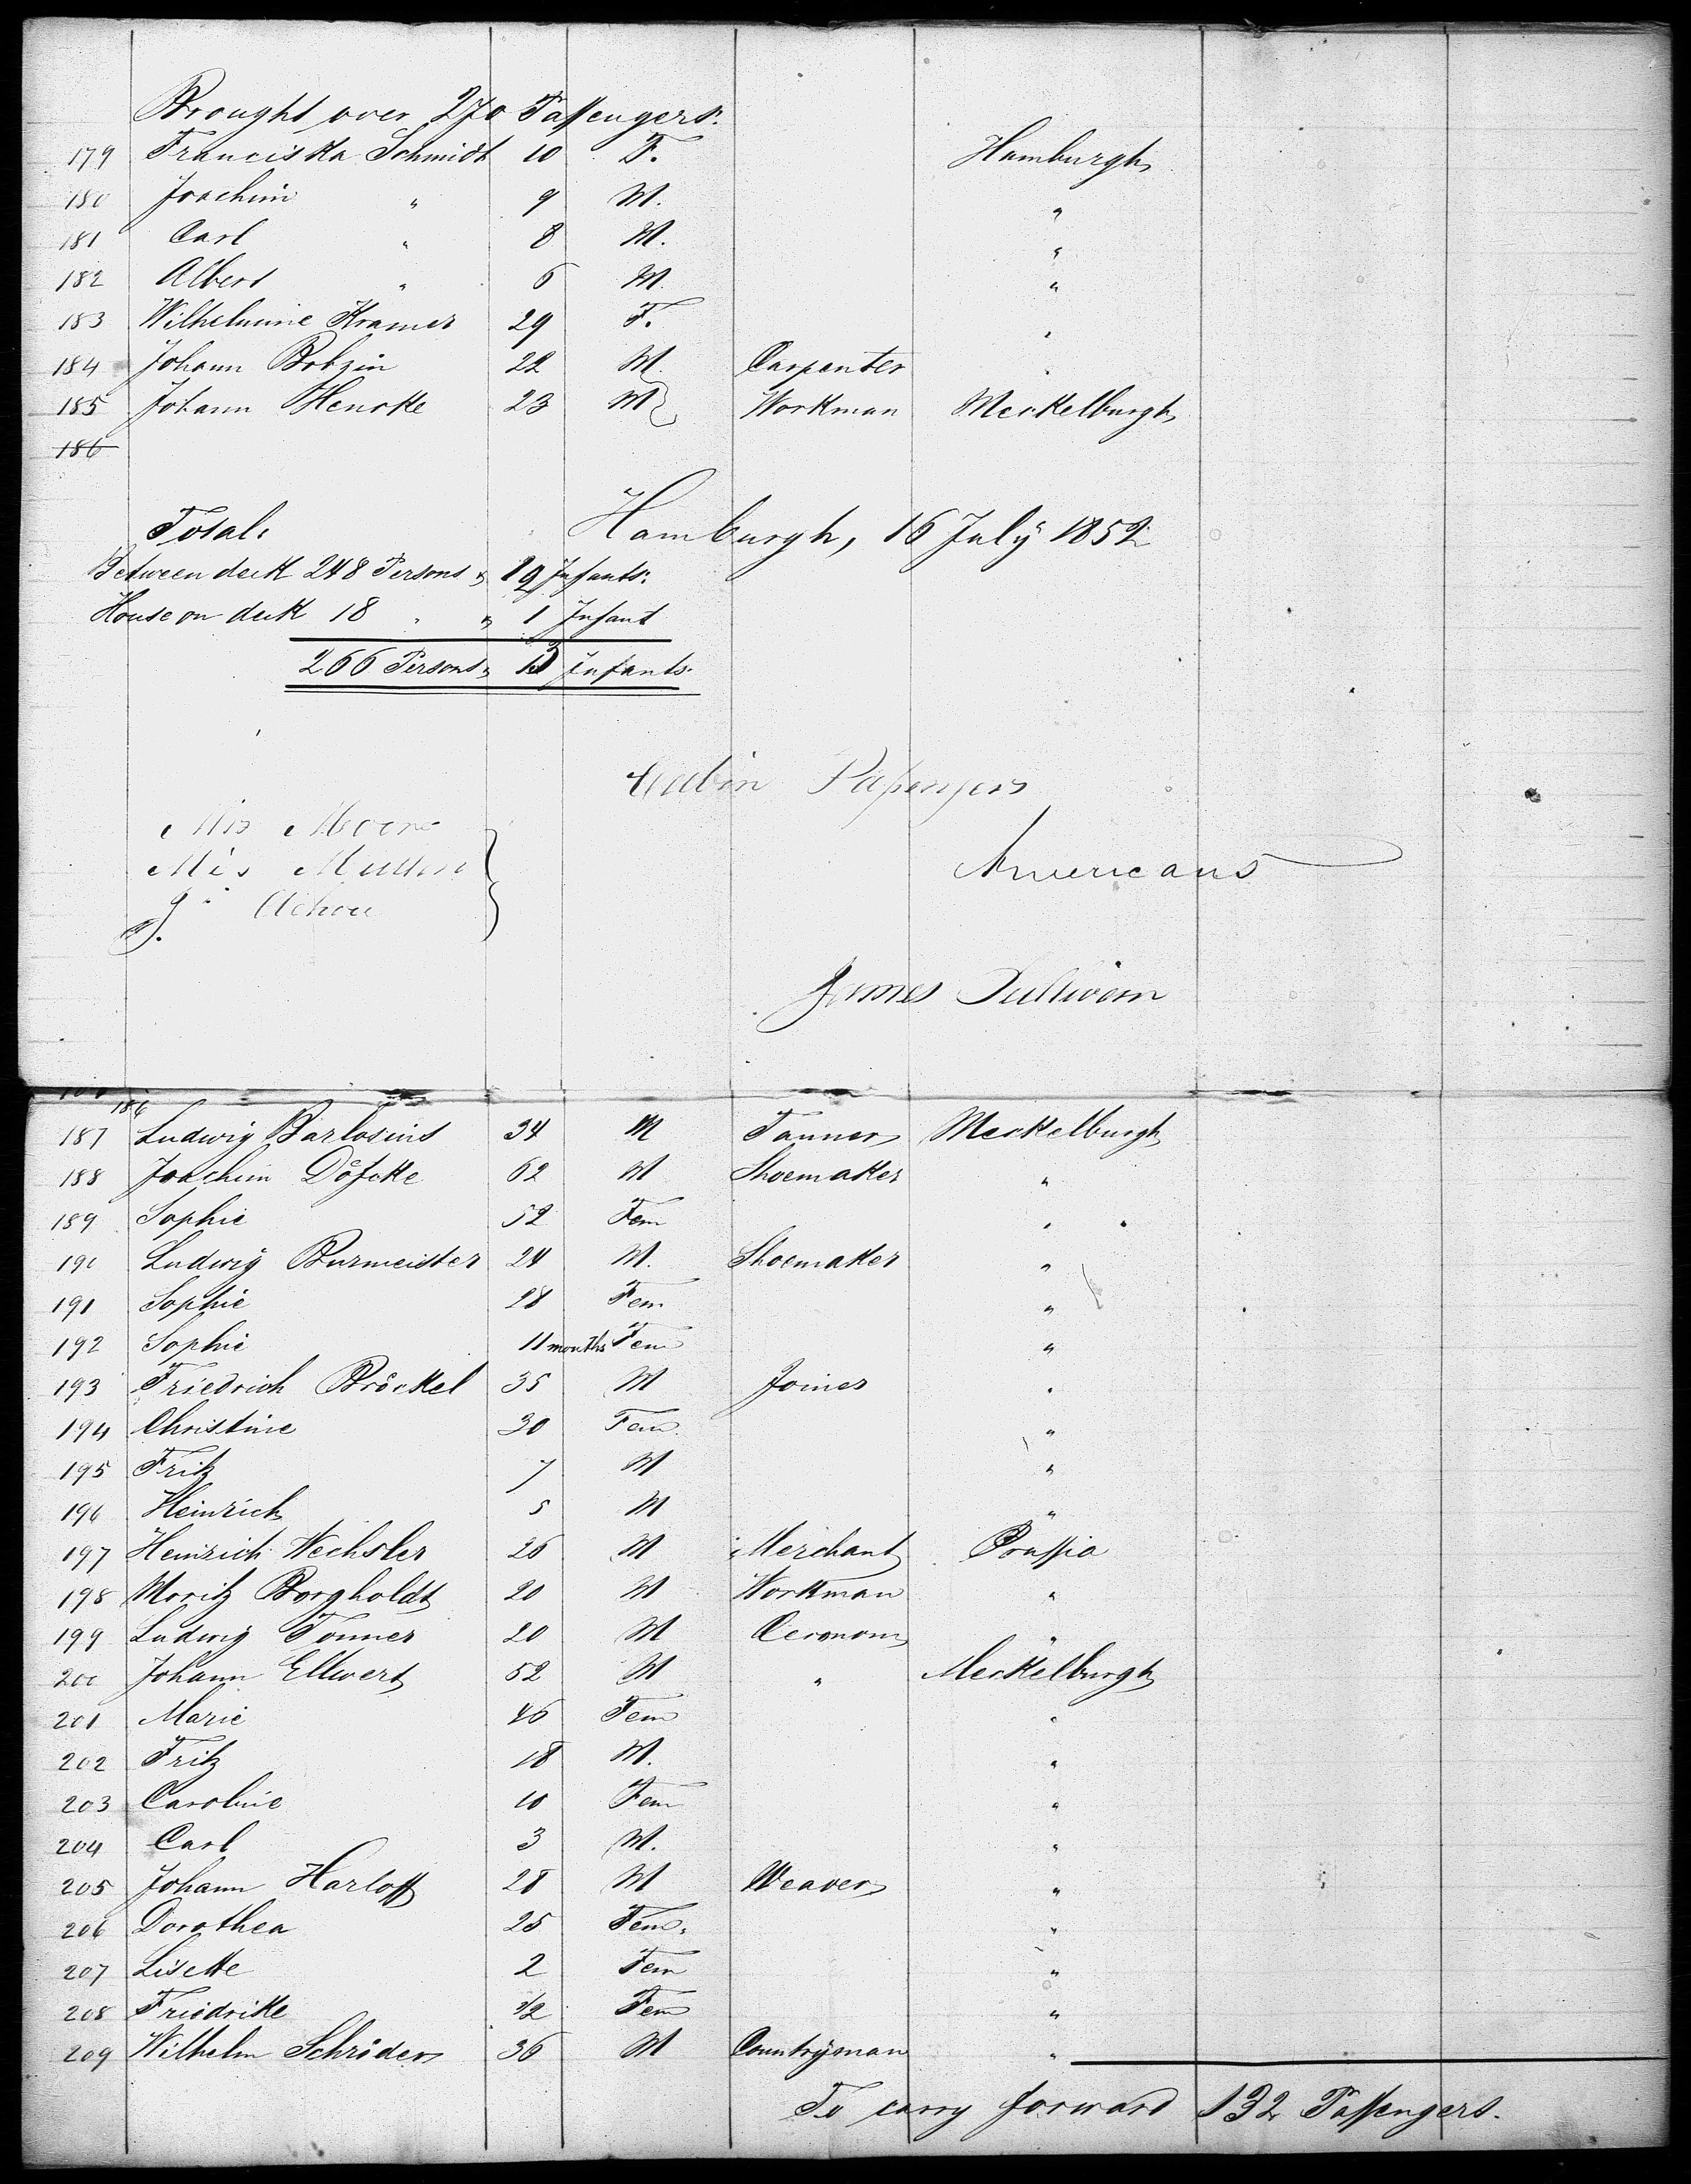 Brought over 270 Passengers.
179 Franciska Schmidt 10 F. Hamburgh
180 Joachim " 9 M. "
181 Carl " 8 M. "
182 Albert " 6 M. "
183 Wilhelmine Kramer 29 F. "
184 Johann Bobzin 22 M. Carpenter "
185 Johann Hencke 23 M Workman Meckelburgh
186
Total: Hamburgh, 16 July 1852
Between deck 248 Persons & 12 Infants.
House on deck 18 " & 1 Infant
266 Persons & 13 Infants.
Cabin Passengers
Mrs Moore
Mrs
J. Americans
James Sullivan
186
187 Ludwig Barlosius 34 M Tanner Meckelburgh
188 Joachim Döscke 62 M Shoemaker "
189 Sophie 52 Fem "
190 Ludwig Burmeister 24 M. Shoemaker "
191 Sophie 28 Fem "
192 Sophie 11 months Fem "
193 Friedrich Bröckel 35 M Joiner "
194 Christine 30 Fem. "
195 Fritz 7 M "
196 Heinrich 5 M "
197 Heinrich Wechsler 26 M Merchant Prussia
198 Moritz Borgholdt 20 M Workman "
199 Ludwig Tonner 20 M Oeconom "
200 Johann Ellwert 52 M " Meckelburgh
201 Marie 46 Fem "
202 Fritz 18 M. "
203 Caroline 10 Fem "
204 Carl 3 M. "
205 Johann Harloff 28 M Weaver "
206 Dorothea 25 Fem. "
207 Lisette 2 Fem "
208 Friedrike 1/2 Fem "
209 Wilhelm Schröder 36 M Countryman "
To carry forward 132 Passengers.